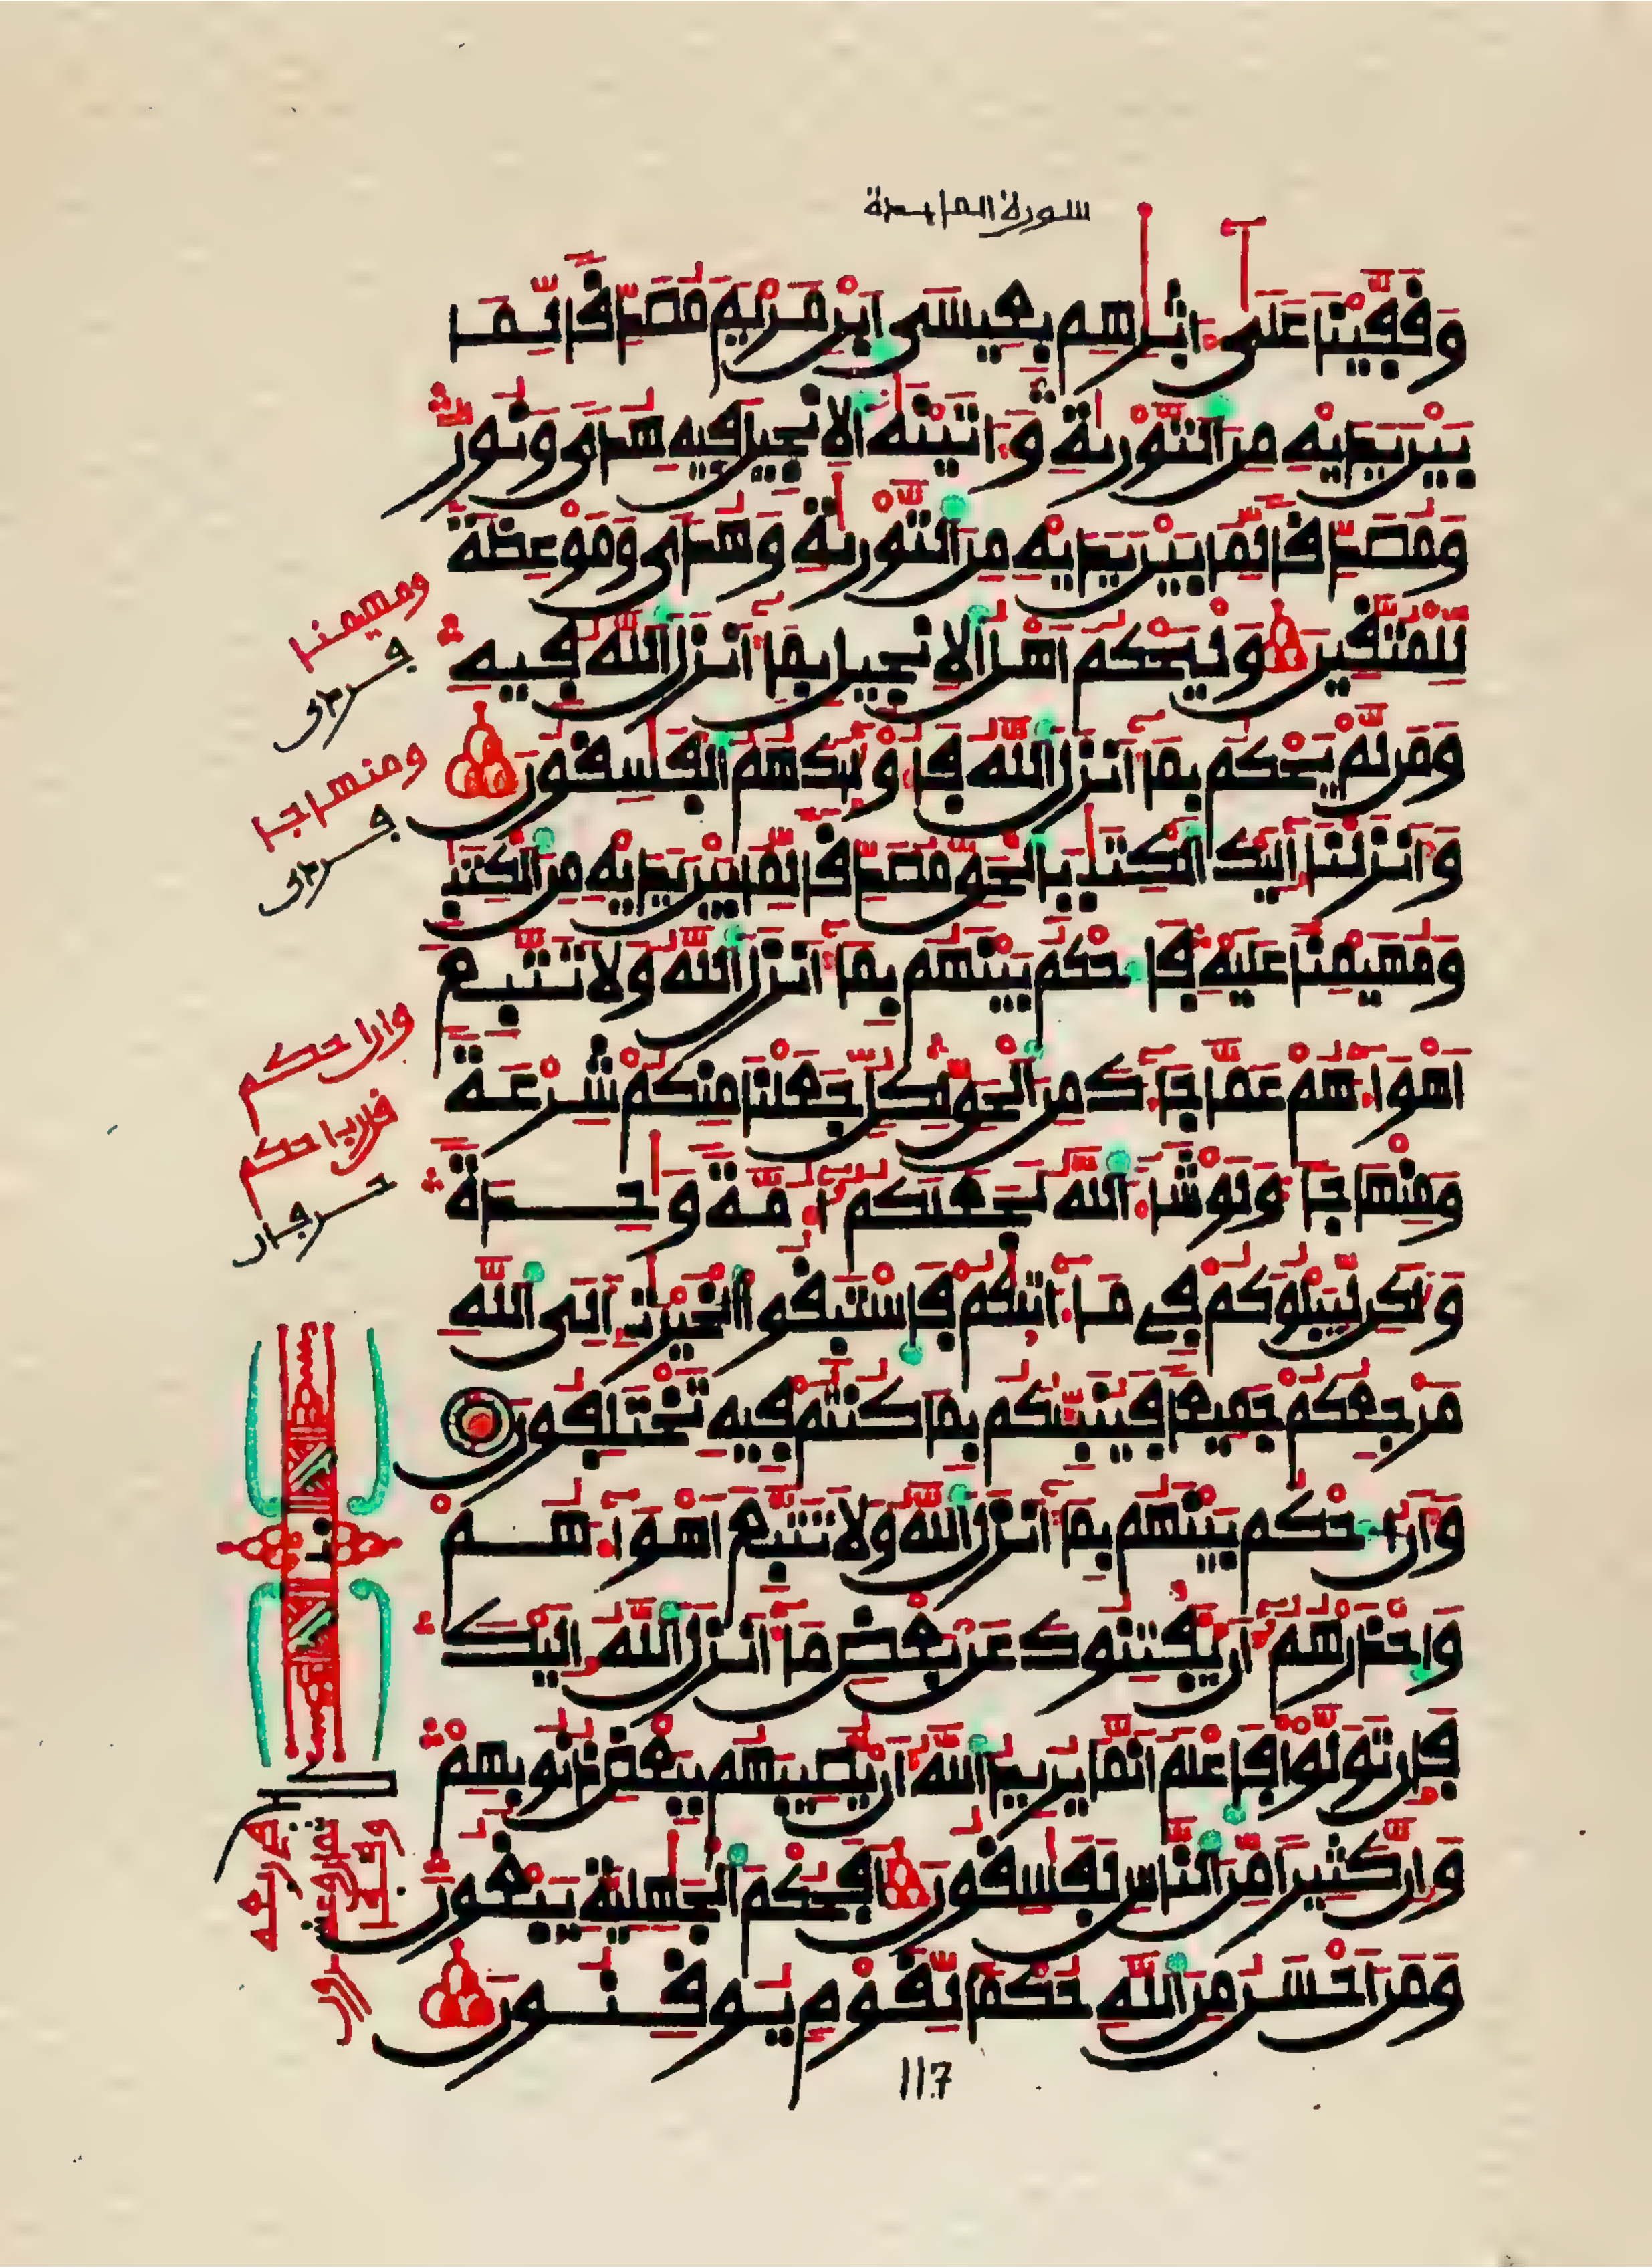 سورة المايدة
وَقَفَّيْنَا عَلَىٰٓ ءَاثَٰرِهِم بِعِيسَى اَبْنِ مَرْيَمَ مُصَدِّقًا لِّمَا
بَيْنَ يَدَيْهِ مِنَ اَلتَّوْرَىٰةِ وَءَاتَيْنَٰهُ اُلِانجِيلَ فِيهِ هُدًى وَنُورٌ
وَمُصَدِّقًا لِّمَا بَيْنَ يَدَيْهِ مِنَ اَلتَّوْرَىٰةِ وَهُدًى وَمَوْعِظَةً
لِّلْمُتَّقِينَ وَلْيَحْكُمَ اَهْلُ اُلِانجِيلِ بِمَآ أَنزَلَ اَللَّهُ فِيهِ
وَمَن لَّمْ يَحْكُم بِمَآ أَنزَلَ اَللَّهُ فَأُوْلَٰٓئِكَ هُمُ اُلْفَٰسِقُونَ
وَأَنزَلْنَآ إِلَيْكَ اَلْكِتَٰبَ بِالْحَقِّ مُصَدِّقًا لِّمَا بَيْنَ يَدَيْهِ مِنَ اَلْكِتَٰبِ
وَمُهَيْمِنًا عَلَيْهِ فَاحْكُم بَيْنَهُم بِمَآ أَنزَلَ اَللَّهُ وَلَا تَتَّبِعَ
اَهْوَآءَهُمْ عَمَّا جَآءَكَ مِنَ اَلْحَقِّ لِكُلٍّ جَعَلْنَا مِنكُمْ شِرْعَةً
وَمِنْهَاجًا وَلَوْ شَآءَ اَللَّهُ لَجَعَلَكُمُۥٓ أُمَّةً وَٰحِدَةً
وَلَٰكِن لِّيَبْلُوَكُمْ فِي مَآ ءَاتَىٰكُمْ فَاسْتَبِقُوا اُلْخَيْرَٰتِ إِلَى اَللَّهِ
مَرْجِعُكُمْ جَمِيعًا فَيُنَبِّئُكُم بِمَا كُنتُمْ فِيهِ تَخْتَلِفُونَ
وَأَنُ اُحْكُم بَيْنَهُم بِمَآ أَنزَلَ اَللَّهُ وَلَا تَتَّبِعَ اَهْوَآءَهُمْ
وَاحْذَرْهُمُۥٓ أَن يَفْتِنُوكَ عَنۢ بَعْضِ مَآ أَنزَلَ اَللَّهُ إِلَيْكَ
فَإِن تَوَلَّوْا فَاعْلَمَ اَنَّمَا يُرِيدُ اُللَّهُ أَن يُصِيبَهُم بِبَعْضِ ذُنُوبِهِمْ
وَإِنَّ كَثِيرًا مِّنَ اَلنَّاسِ لَفَٰسِقُونَ أَفَحُكْمَ اَلْجَٰهِلِيَّةِ يَبْغُونَ
وَمَنَ اَحْسَنُ مِنَ اَللَّهِ حُكْمًا لِّقَوْمٍ يُوقِنُونَ
117
ومهيمنا
ومنهاجا
وان احكم